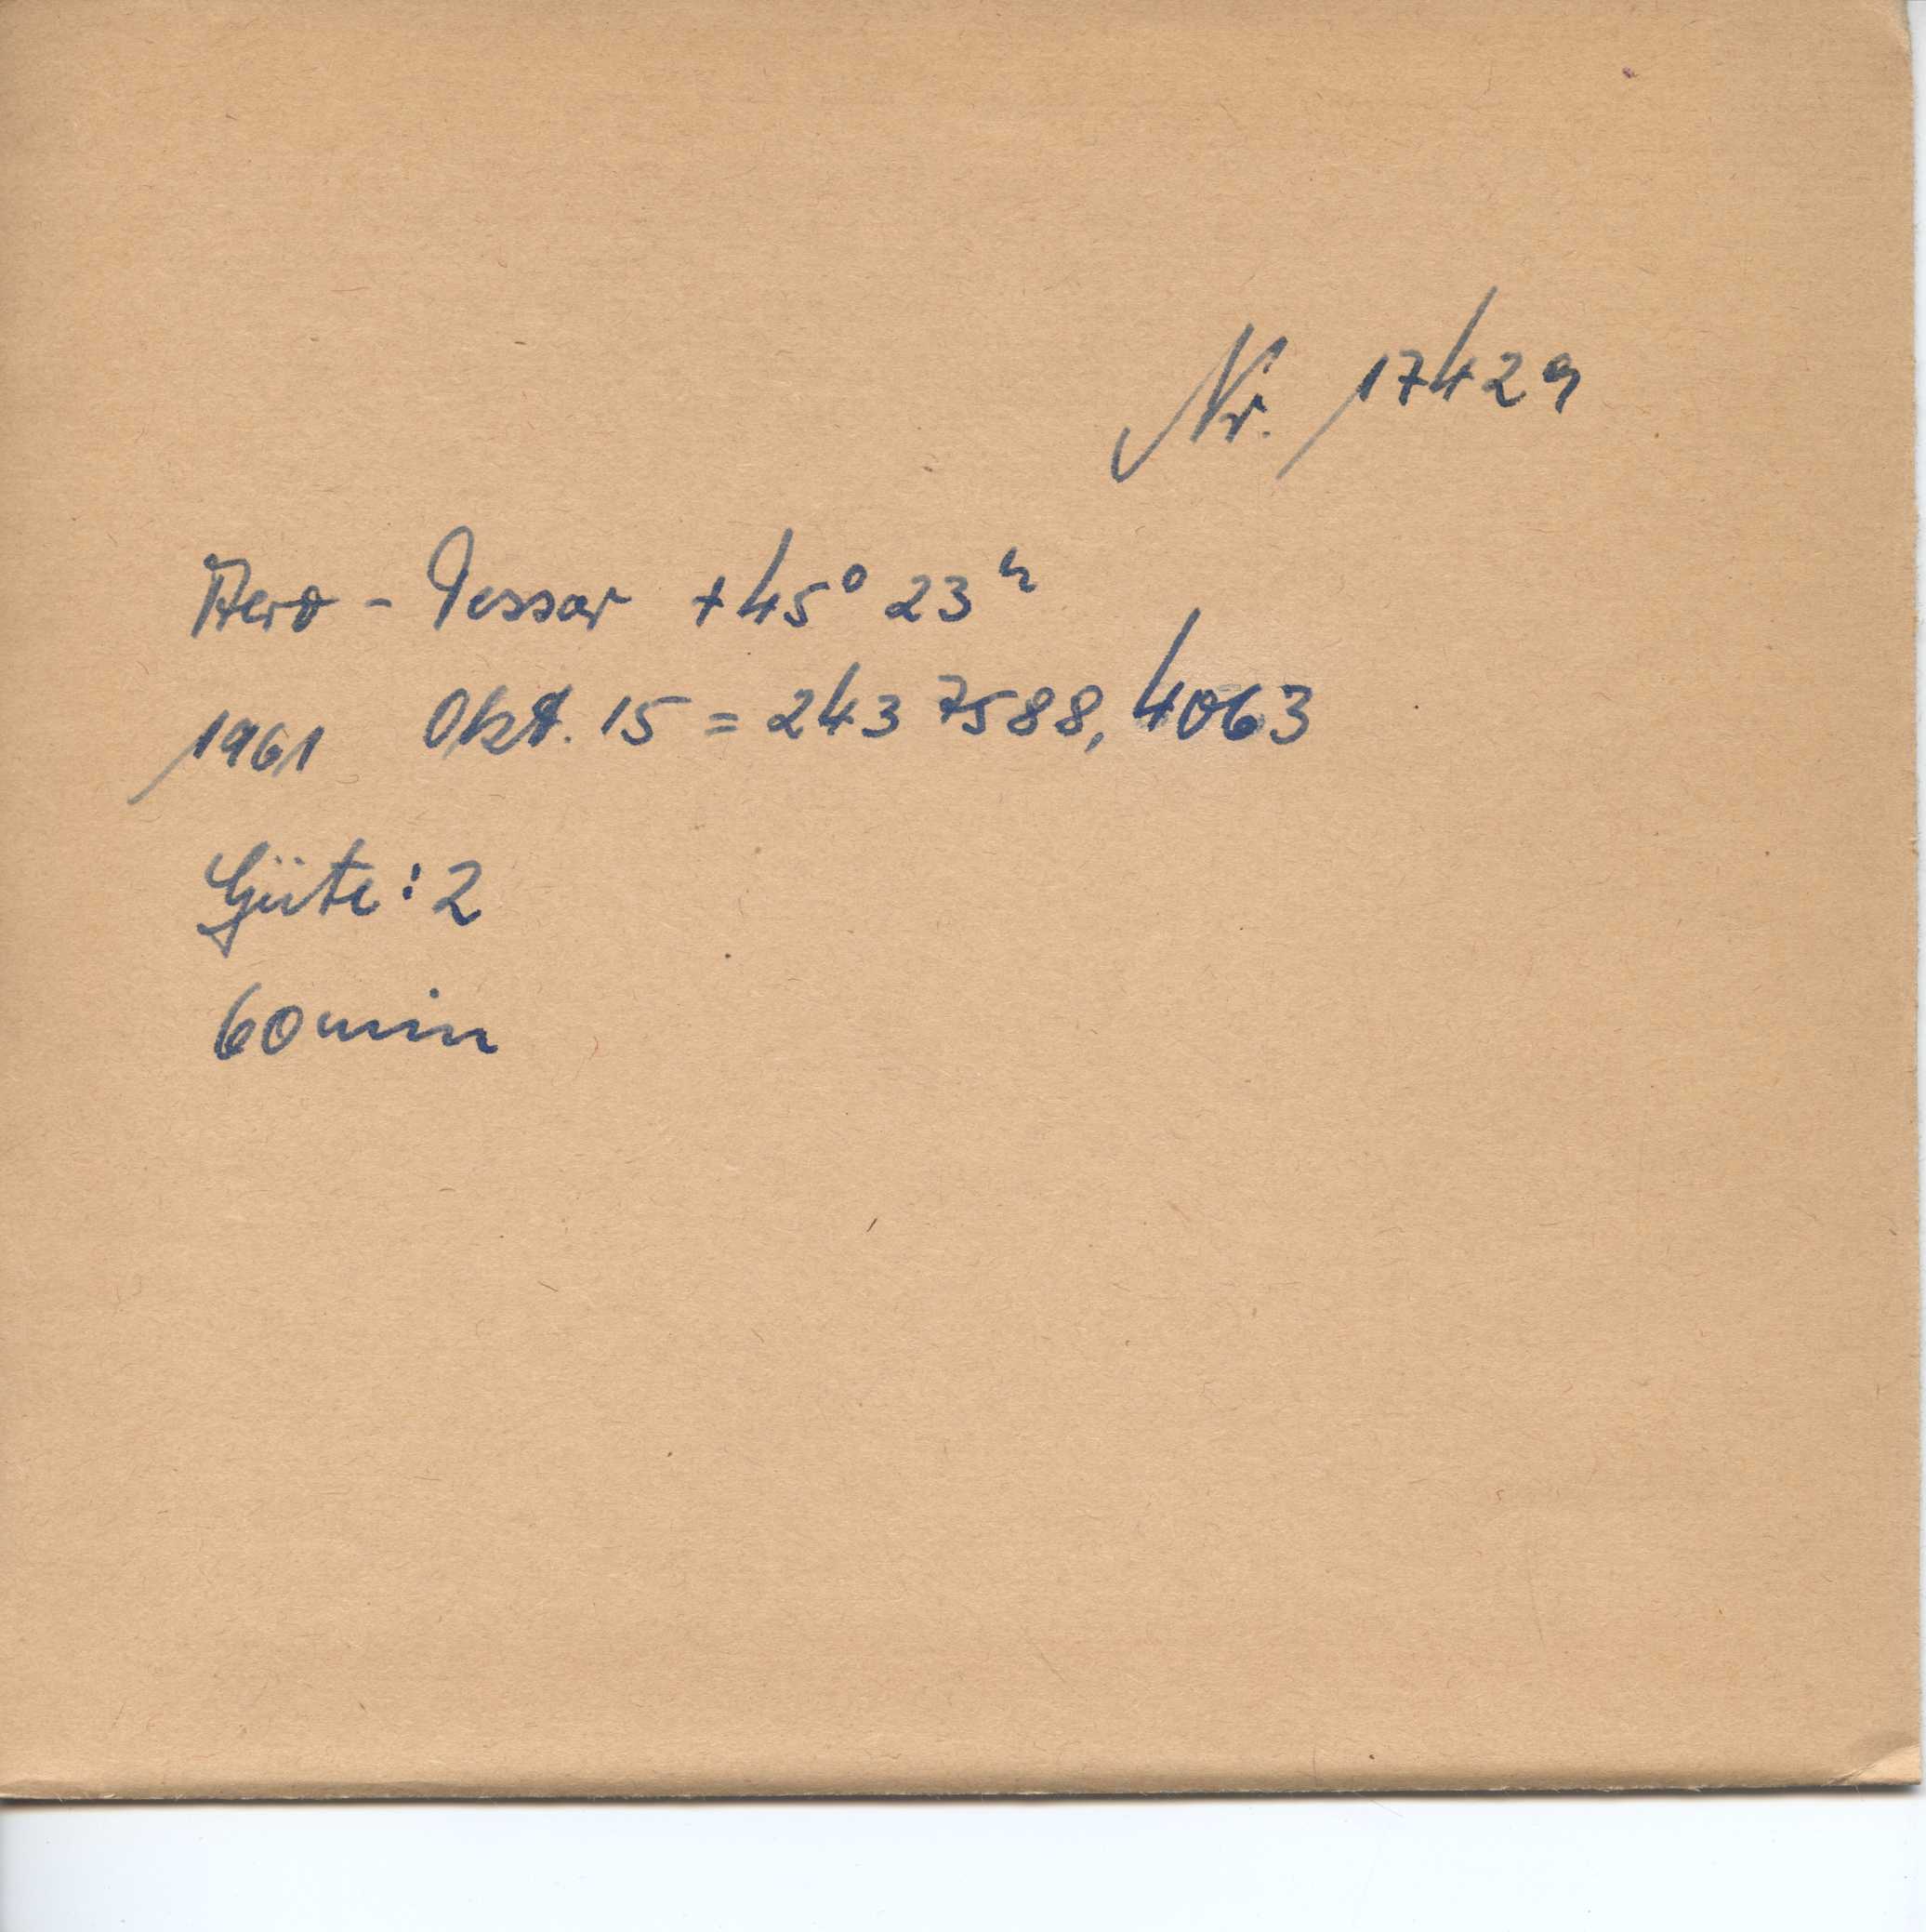 Nr. 17429
Aero - Tessar +45° 23ʰ
1961 Okt. 15 = 243 7588, 4063
Güte: 2
60 min